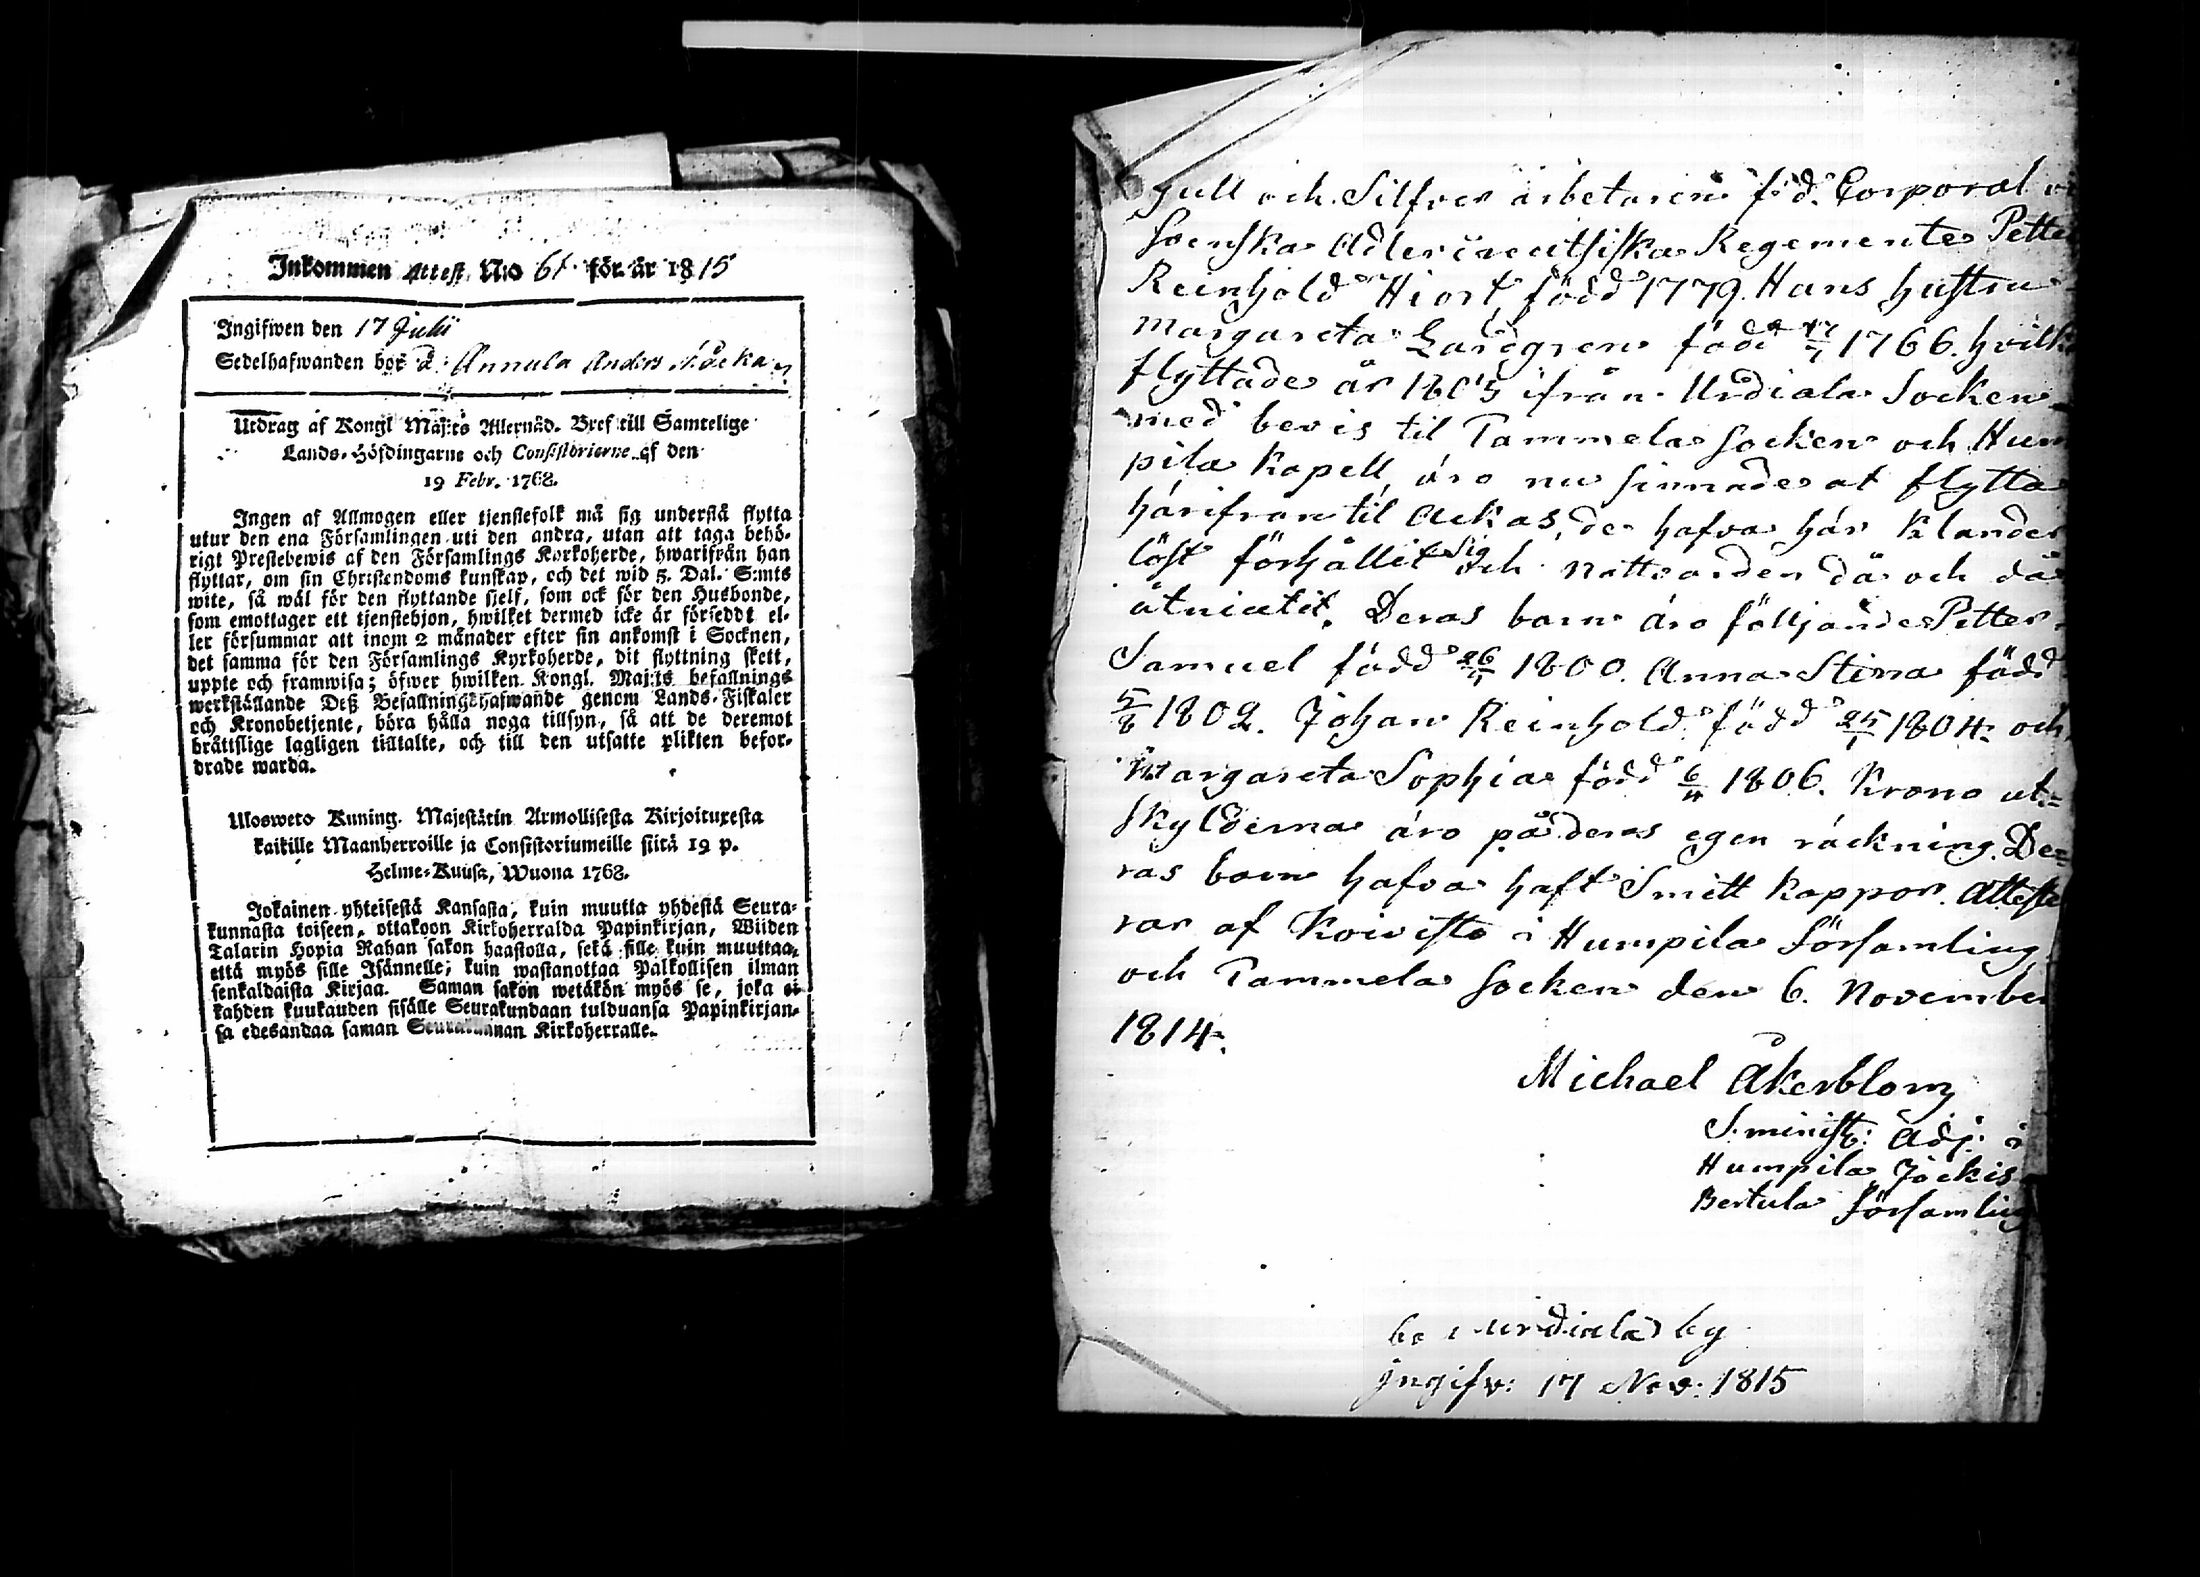 Inkommen Attest N:o 61. för år 1815
Ingifwen den 17 Julii
Sedelhafwanden bor å Annula Anders
Utdrag af Kongl Maj:ts Allernåd. Bref till Samtelige
Lands-Höfdingarne och Consistorierne af den
19 Febr. 1768.
Ingen af Allmogen eller tjenstefolk må sig understå flytta
utur den ena Församlingen uti den andra, utan att taga behö-
rigt Prestebewis af den Församlings Korkoherde, hwarifrån han
flyttar, om sin Christendoms kunskap, och det wid 5. Dal. S:mts
wite, så wäl för den flyttande sjelf, som ock för den Husbonde,
som emottager ett tjenstehjon, hwilket dermed icke är förseddt el-
ler försummar att inom 2 månader efter sin ankomst i Socknen,
det samma för den Församlings Kyrkoherde, dit flyttning skett,
uppte och framwisa; öfwer hwilken Kongl. Maj:ts befallnings
werkställande Deß Befallningshafwande genom Lands-Fiskaler
och Kronobetjente, böra hålla noga tillsyn, så att de deremot
bråttslige lagligen tilltalte, och till den utsatte plikten befor-
drade warda.
Ulosweto Kuning. Majestätin Armollisesta Kirjoituxesta
kaikille Maanherroille ja Consistoriumeille siitä 19 p.
Helme-Kuusa, Wuona 1768.
Jokainen yhteisestä Kansasta, kuin muutta yhdestä Seura-
kunnasta toiseen, ottakoon Kirkoherralda Papinkirjan, Wiiden
Talarin Hopia Rahan sakon haastolla, sekä sille kuin muuttaa,
että myös sille Isännelle, kuin wastanottaa Palkollisen ilman
senkaldaista Kirjaa. Saman sakon wetäkön myös se, joka ei
kahden kuukauden sisälle Seurakundaan tulduansa Papinkirjan-
sa edesandaa saman Seurakunnan Kirkoherralle.
gull och Silfver arbetaren föd. Corporal
Svenska Adlercreutsiska Regemente Petter
Reinhold Hiort född 1779. Hans hustru
Margareta född 17/7 1766. hvilk
flyttade år 1805 ifrån Urdiala Socken
med bevis til Tammela Socken och Hum
pila Kapell, äro nu sinnade at flytta
härifrån til Ackas, de hafva här Klander
löst förhållit sig och Nattvarden då och då
åtniutit. Deras barn äro följande Petter
Samuel född 26/11 1800. Anna Stina född
5/8 1802. Johan Reinhold född 25/1 1804 och
Margareta Sophia född 6/11 1806. Krono ut-
skylderna äro på deras egen räckning. De-
ras barn hafva haft Smitt Koppor. Atteste
rar af Koivisto i Humpila Församling
och Tammela Socken den 6. November
1814.
Michael Åkerblom
S. minist: Adj. i
Humpila Jockis
Bertula Församling
bo i Urdiala by
Jngifv: 17 Nov: 1815